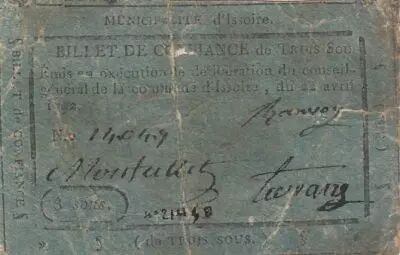 MUNICIPALITÉ d'Issoire.
BILLET DE CONFIANCE de TROIS Sou
Émis en exécution de délibération du conseil-
général de la commune d'Issoire, du 22 avril
1792.
N.o 14049
Montullet
3 sous.
No 21448
( de TROIS SOUS. §
§ BILLET de CONFIANCE §